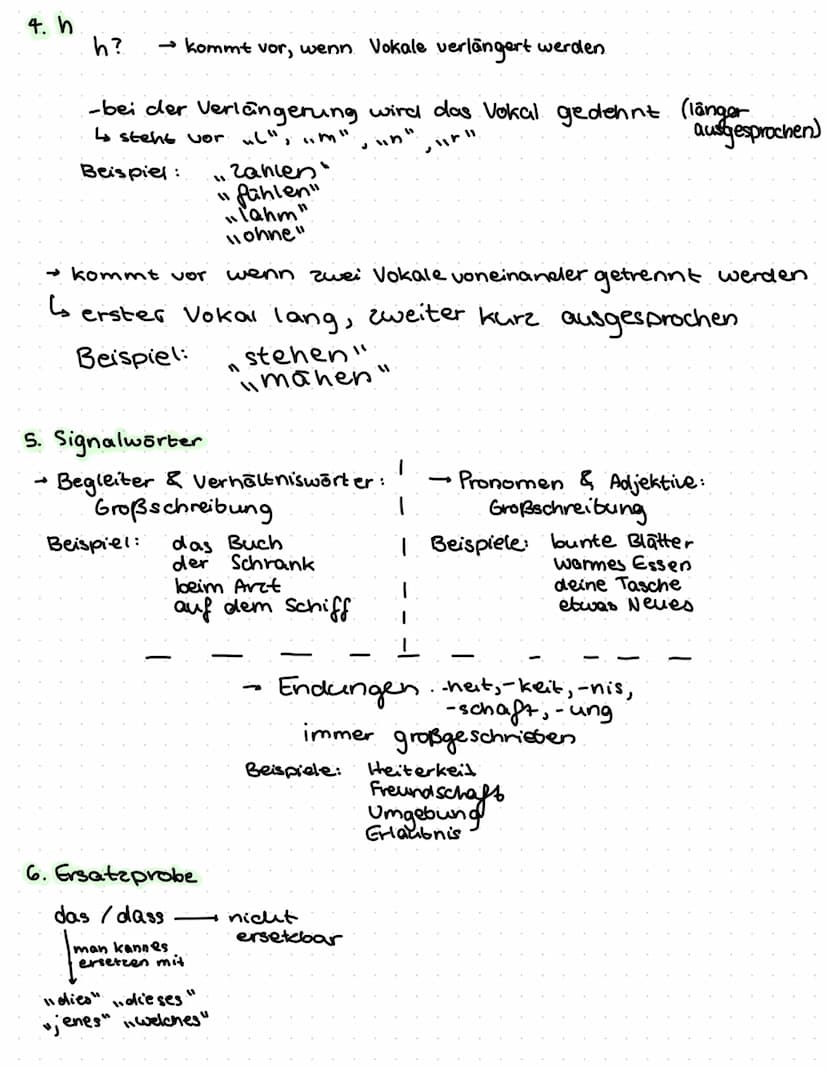 4. h
h? → kommt vor, wenn Vokale verlängert werden
-bei der Verlängerung wird das Vokal gedehnt (länger
ausgesprochen)
↳ steht vor „l", „m", „n", „r"
Beispiel: „zahlen"
„fühlen"
„lahm"
„ohne"
→ kommt vor wenn zwei Vokale voneinander getrennt werden
↳ erster Vokal lang, zweiter kurz ausgesprochen
Beispiel: „stehen"
„mähen"
5. Signalwörter
→ Begleiter & Verhältniswörter:
Großschreibung
Beispiel: das Buch
der Schrank
beim Arzt
auf dem Schiff
→ Pronomen & Adjektive:
Großschreibung
Beispiele: bunte Blätter
warmes Essen
deine Tasche
etwas Neues
→ Endungen: -heit, -keit, -nis,
-schaft, -ung
immer großgeschrieben
Beispiele: Heiterkeit
Freundschaft
Umgebung
Erlaubnis
6. Ersatzprobe
das / dass → nicht
ersetzbar
man kann es
ersetzen mit
„dies" „dieses"
„jenes" „welches"